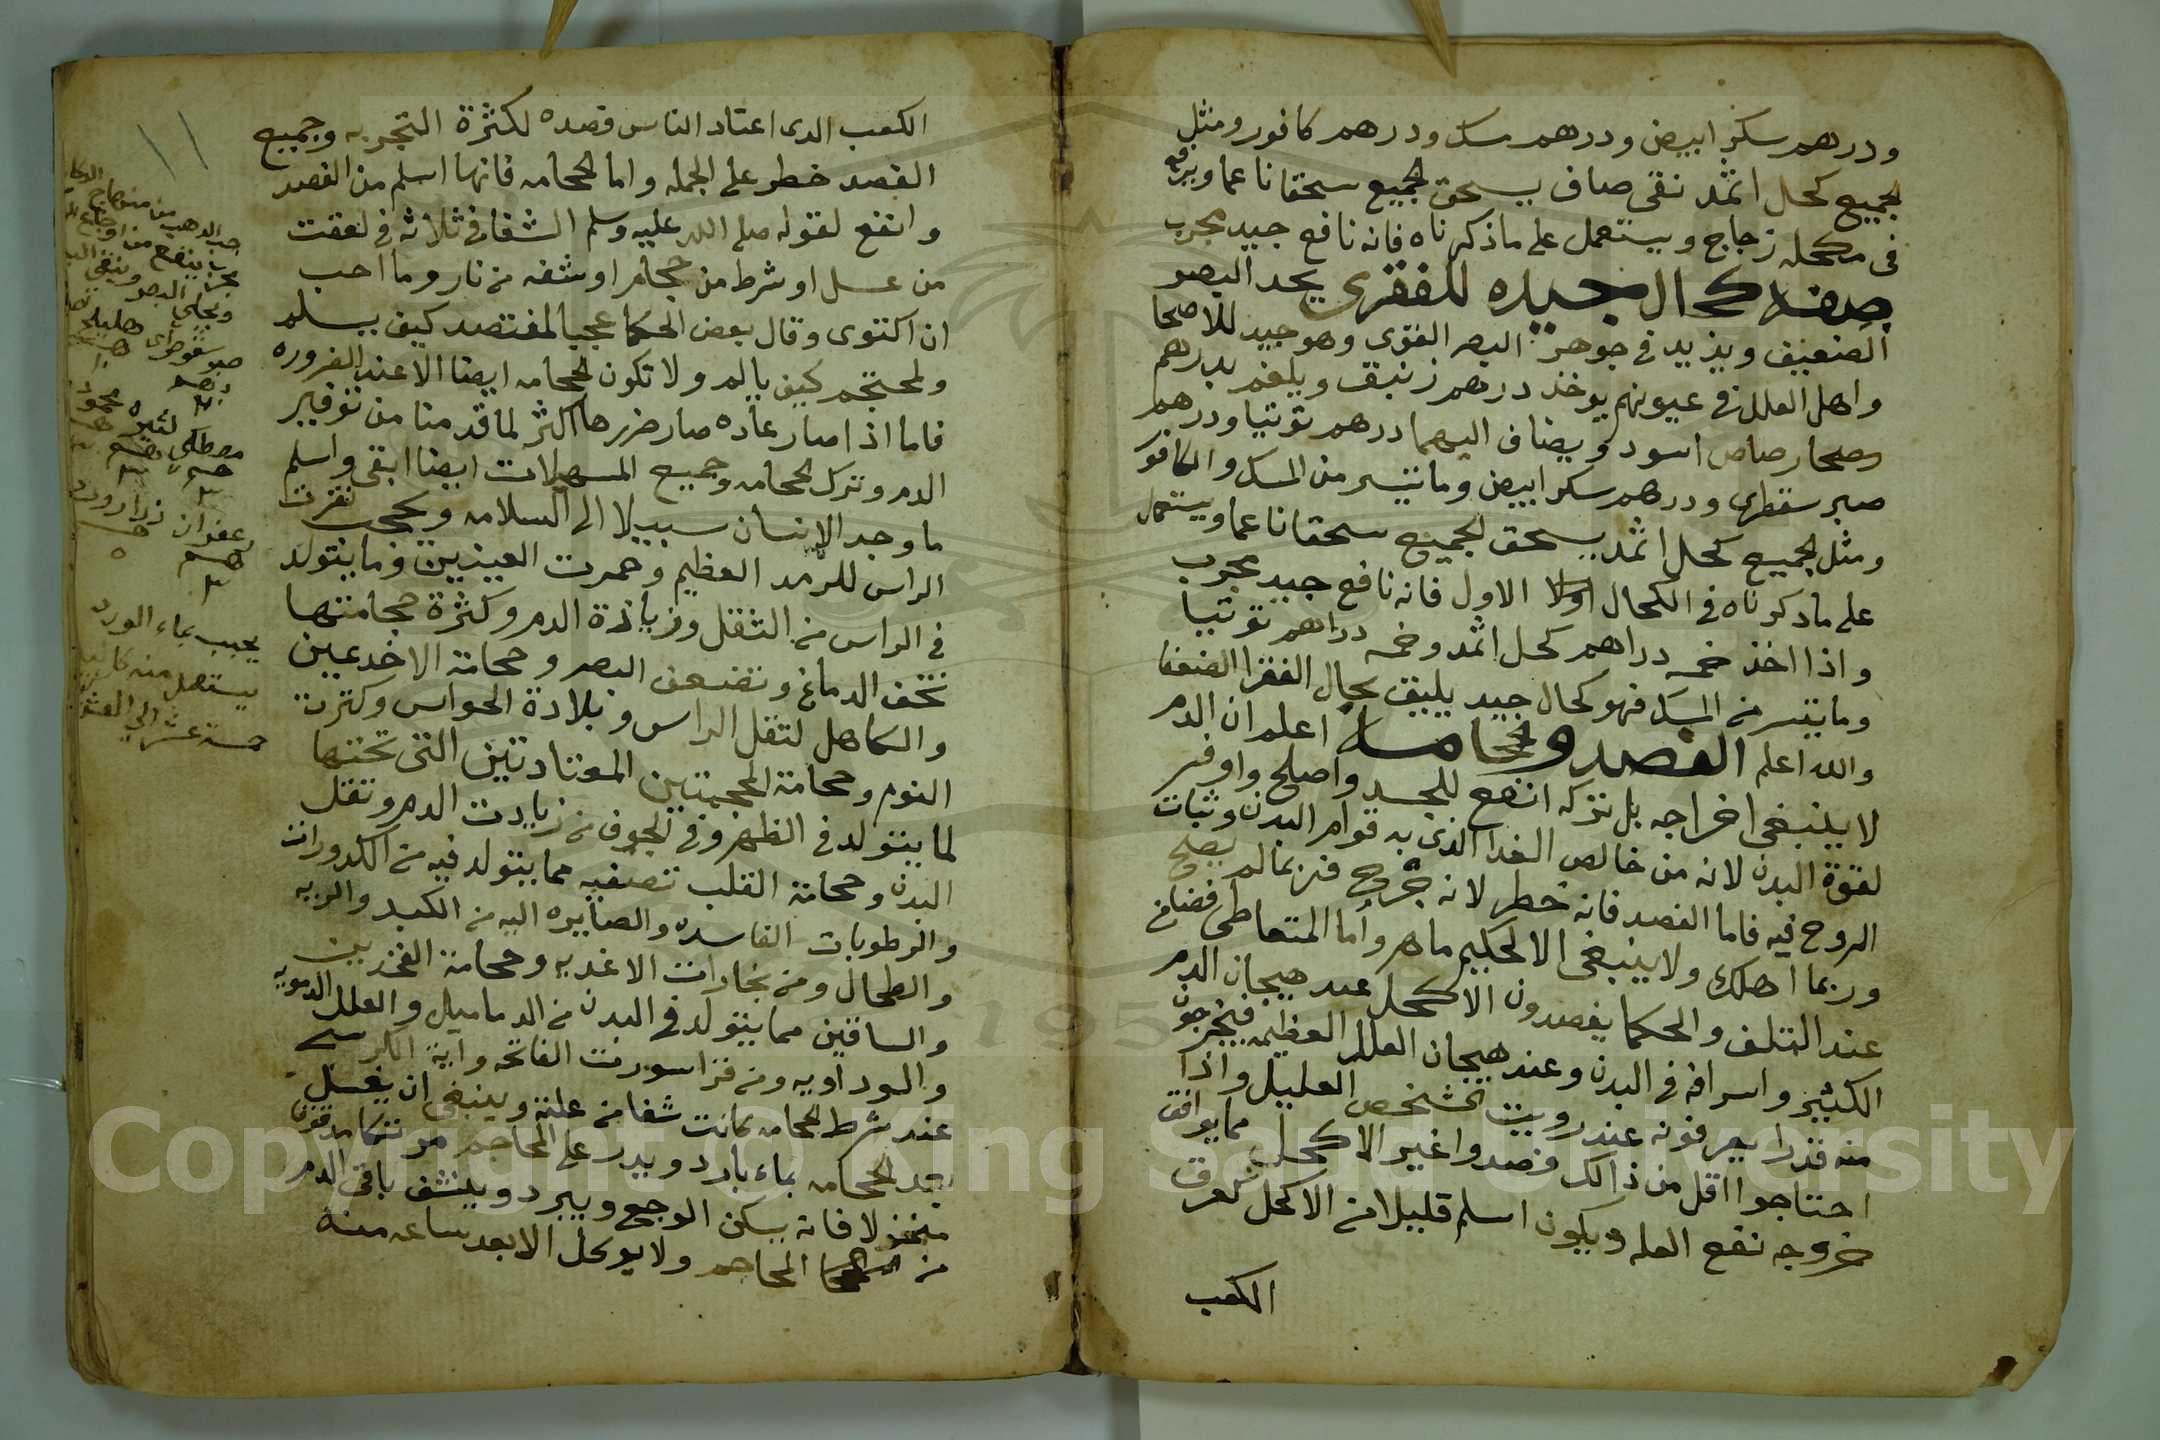 ودرهم سكر ابيض ودرهم مسك ودرهم كافور ومثل
الجميع كحل اثمد نقي صاف يسحق الجميع سحقا ناعما ويرفع
في مكحله زجاج ويستعمل على ما ذكرناه فانه نافع جيد مجرب
صفة كحال جيده للفقرى يحد البصر
الضعيف ويزيد في جوهر البصر القوي وهو جيد للاصحا
واهل العلل في عيونهم يوخذ درهم زنبق ويلغم بدرهم
رصاص اسود ويضاف اليهما درهم توتيا ودرهم
صبر سقطري ودرهم سكر ابيض وما تيسر من المسك والكافور
ومثل الجميع كحل اثمد يسحق الجميع سحقا ناعما ويستعمل
على ما ذكرناه في الكحال الاول فانه نافع جيد مجرب
واذا اخذ خمسه دراهم كحل اثمد وخمسه دراهم توتيا
وما تيسر من المسك فهو كحال جيد يليق بحال الفقرا الضعفا
والله اعلم الفصد والحجامه اعلم ان الدم
لا ينبغي اخراجه بل تركه انفع للجسد واصلح واوفر
لقوة البدن لانه من خالص الغدا الذي به قوام البدن وثبات
الروح فيه فاما الفصد فانه خطر لانه جرح فربما لم يصلح
وربما اهلك ولا ينبغي الا لحكيم ماهر واما المتعاطي فضامن
عند التلف والحكما يفصدون الاكحل عند هيجان الدم
الكثير واسرافه في البدن وعند هيجان العلل العظيمه فيخرجون
منه قدرا يعرفونه عند رويت شخص العليل واذا
احتاجوا اقل من ذالك فصدوا غير الاكحل مما يوافق
خروجه نفع العله ويكون اسلم قليلا من الاكحل كعرق
الكعب
الكعب الدى اعتاد الناس فصده لكثرة التجربه وجميع
الفصد خطر على الجمله واما الحجامه فانها اسلم من الفصد
وانفع لقوله صلى الله عليه وسلم الشفا في ثلاثه في لعقت
من عسل او شرط من حجام او شفه من نار وما احب
ان اكتوى وقال بعض الحكما عجبا لمفتصد كيف يسلم
ولمحتجم كيف يالم ولا تكون الحجامه ايضا الا عند الضروره
فاما اذا صار عاده صار ضررها اكثر لما قدمنا من توفير
الدم وترك الحجامه وجميع المسهلات ايضا ابقى واسلم
ما وجد الانسان سبيلا الى السلامه ويحجب نقرت
الراس للرمد العظيم وحمرت العينين وما يتولد
في الراس من الثقل وزياذة الدم وكثرة حجامتها
تخف الدماغ وتضعف البصر وحجامة الاخدعين
والكاهل لثقل الراس وبلادة الحواس وكثرت
النوم وحجامة المحجمتين المعتادتين التي تحتها
لما يتولد في الظهر وفي الجوف من زيادت الدم وثقل
البدن وحجامة القلب تصفيه مما يتولد فيه من الكدورات
والرطوبات الفاسده والصايره اليه من الكبد والريه
والطحال ومن بخارات الاغديه وحجامة الفخدين
والساقين مما يتولد في البدن من الدماميل والعلل الدمويه
والسوداويه ومن قرا سورت الفاتحه واية الكرسي
عند شرط الحجامه كانت شفا من علته وينبغي ان يغسل
بعد الحجامه بماء بارد ويدر على المحاجم
فانه يسكن الوجع ويبرد وينشف باقي الدم
من المحاجم ولا يوكل الا بعد ساعه منه
١١
حب الدهب من منهاج الدكان
مجرب ينفع من اوجاع
ويجلي البصر وينقي
صبر سقوطرى هليلج
مصطكى
زعفران
يحبب بماء الورد
يستعمل منه
خمسة عشر الى العشرين
Copyright © King Saud University
1957